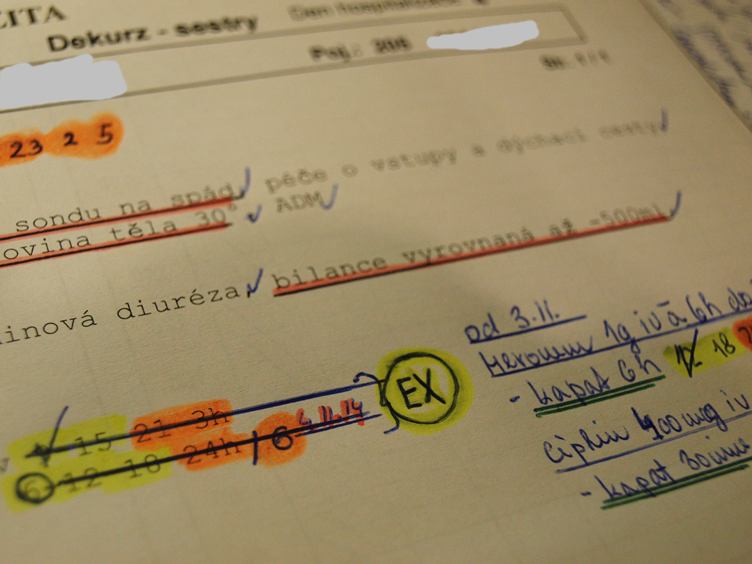 ZITA
Dekurz - sestry
Den hospitalizace
Poj.: 205
Str. 1/1
23 2 5
sondu na spád, péče o vstupy a dýchací cesty
ovina těla 30° ADM
inová diuréza, bilance vyrovnaná až -500ml
od 3.11.
Meronem 1g iv à 6h do
- kapat 6h 12 18
15 21 3h
6 12 18 24h 6 4.11.14
EX
Ciprin 400mg iv
- kapat 30min